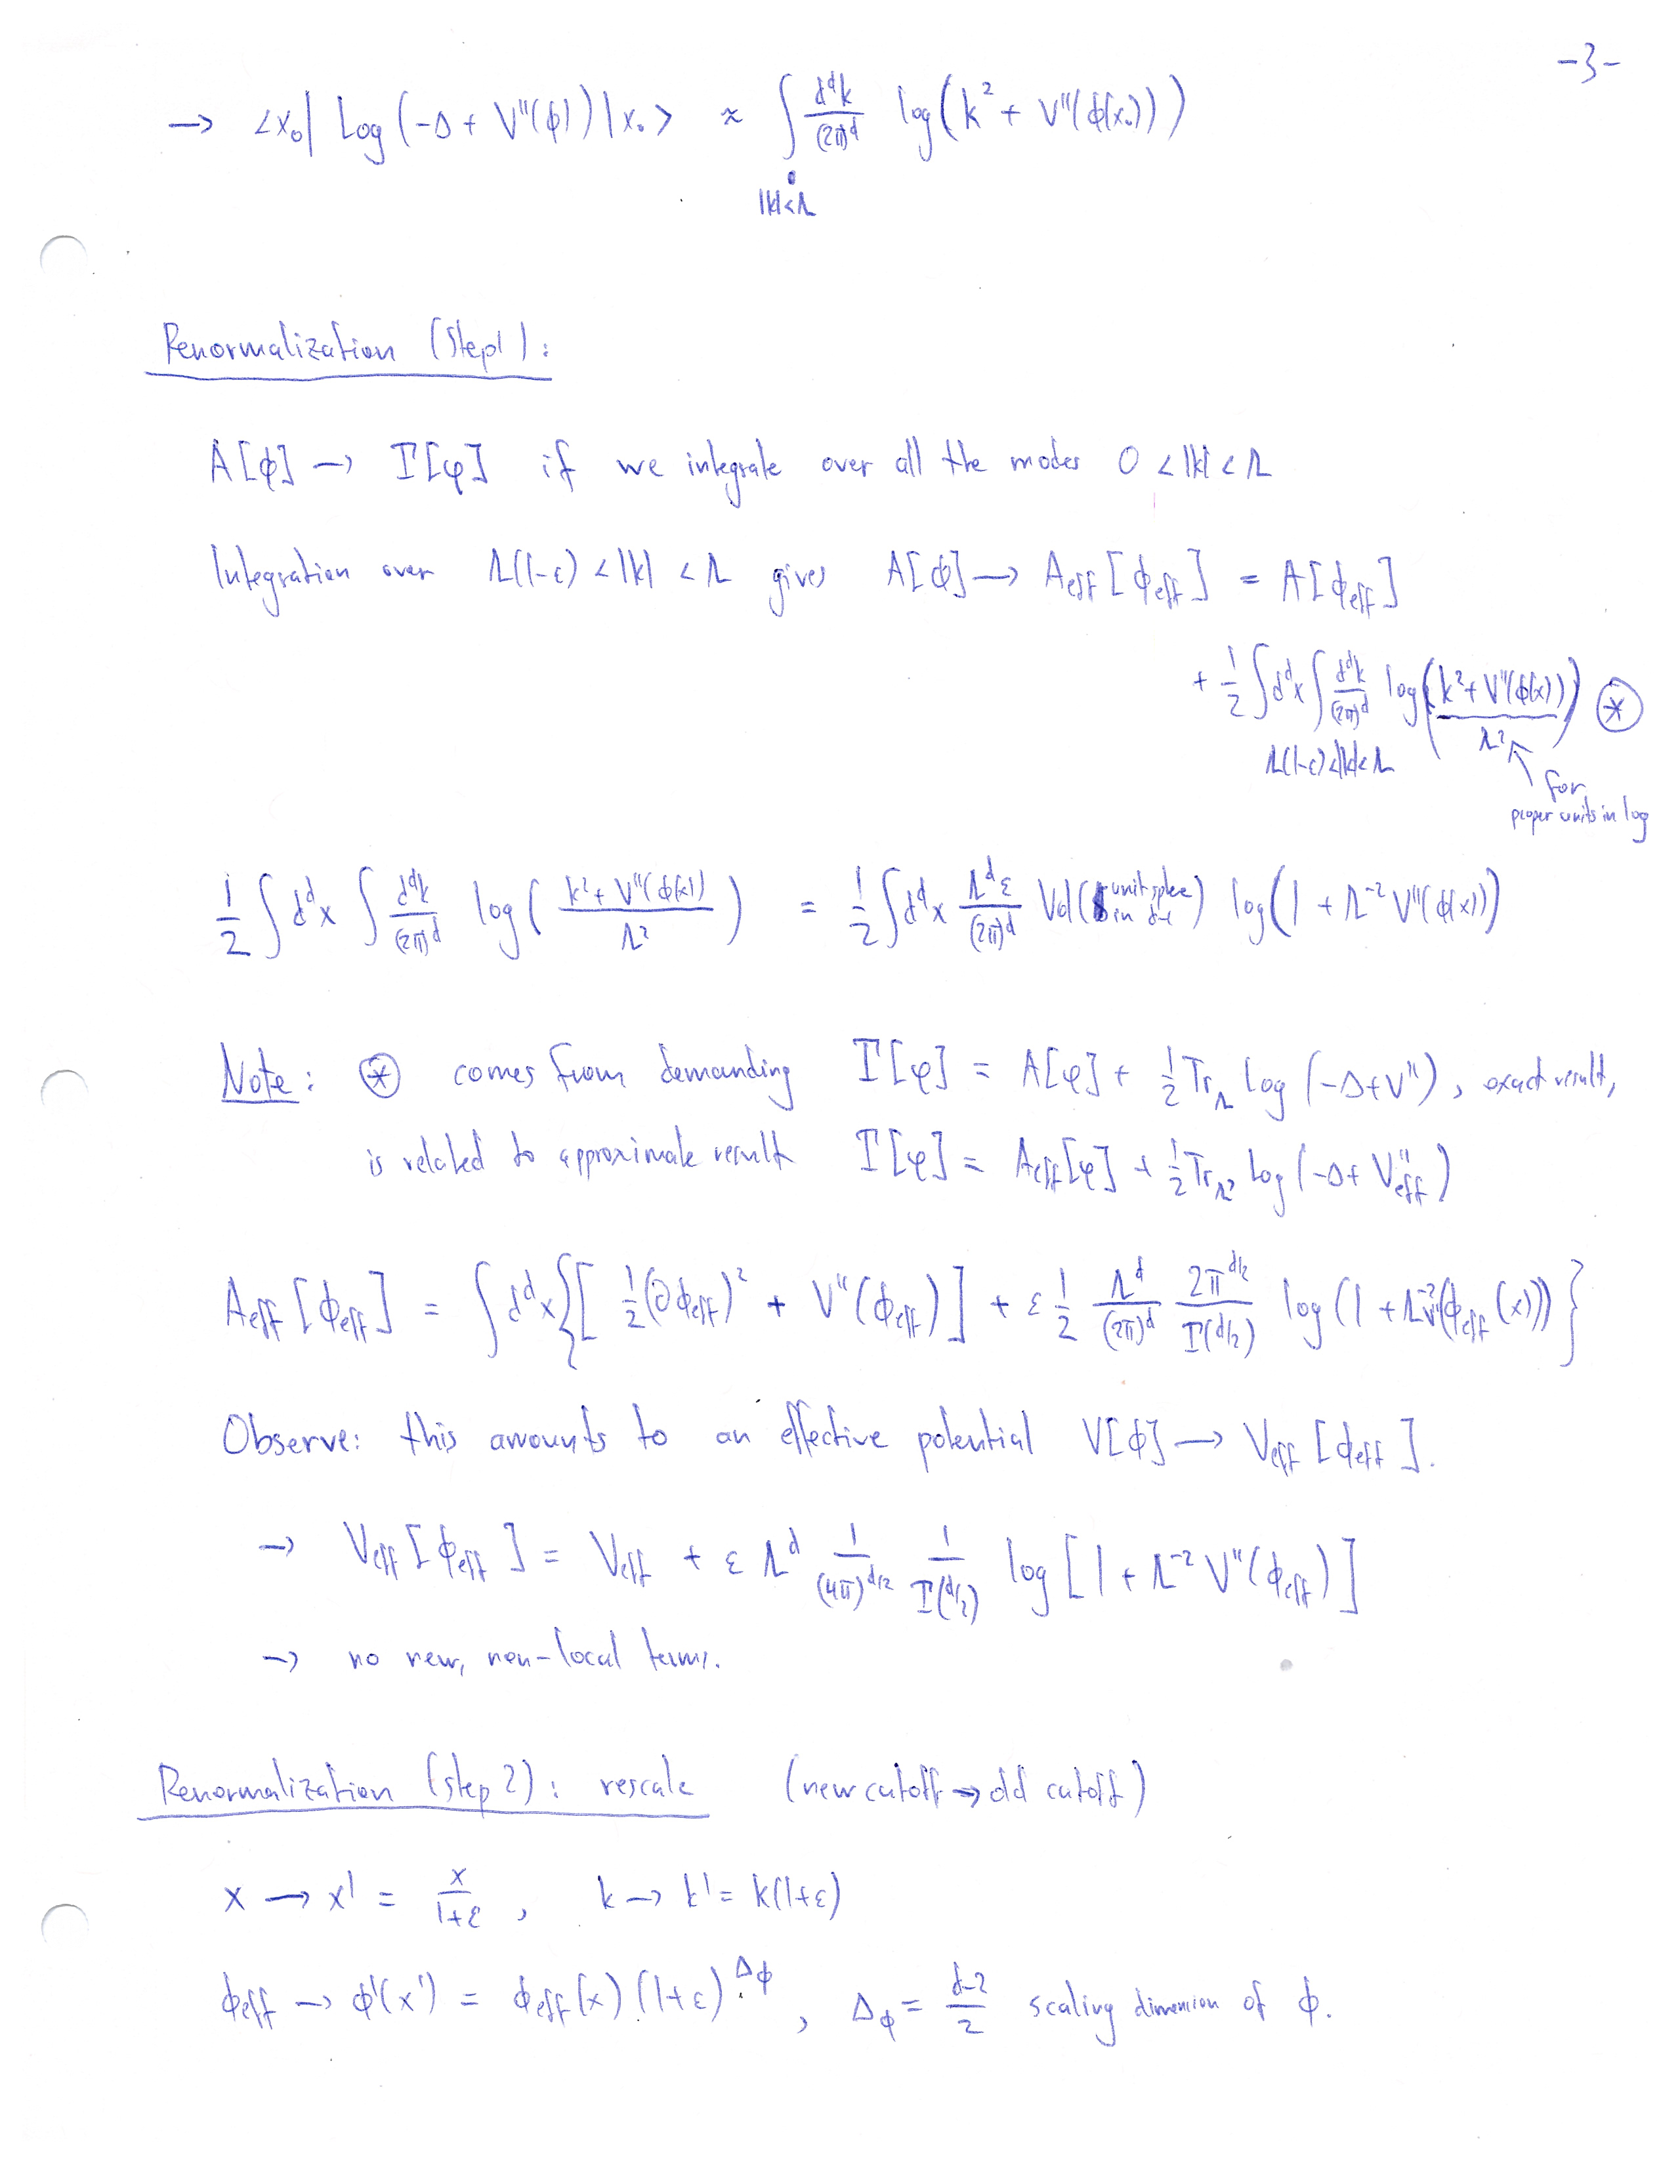 -3-
→ <x₀| Log (-Δ + V''(ϕ)) |x₀> ≈ ∫ dᵈk/(2π)ᵈ log(k² + V''(ϕ(x₀)))
|k|<Λ
Renormalization (Step 1):
A[ϕ] → Γ[φ] if we integrate over all the modes 0 < |k| < Λ
Integration over Λ(1-ε) < |k| < Λ gives A[ϕ] → A_eff[ϕ_eff] = A[ϕ_eff]
+ 1/2 ∫dᵈx ∫ dᵈk/(2π)ᵈ log( (k² + V''(ϕ(x)))/Λ² ) ⊛
Λ(1-ε)<|k|<Λ
for
proper units in log
1/2 ∫dᵈx ∫ dᵈk/(2π)ᵈ log( (k² + V''(ϕ(x)))/Λ² ) = 1/2 ∫dᵈx Λᵈε/(2π)ᵈ Vol(unit sphere in d-1) log(1 + Λ⁻² V''(ϕ(x)))
Note: ⊛ comes from demanding Γ[φ] = A[φ] + 1/2 Tr_Λ Log (-Δ+V''), exact result,
is related to approximate result Γ[φ] = A_eff[φ] + 1/2 Tr_Λ' Log (-Δ + V''_eff)
A_eff[ϕ_eff] = ∫dᵈx{[ 1/2(∂ϕ_eff)² + V''(ϕ_eff)] + ε 1/2 Λᵈ/(2π)ᵈ 2π^{d/2}/Γ(d/2) log(1 + Λ⁻²V''(ϕ_eff(x)))}
Observe: this amounts to an effective potential V[ϕ] → V_eff[ϕ_eff].
→ V_eff[ϕ_eff] = V_eff + ε Λᵈ 1/(4π)^{d/2} 1/Γ(d/2) log[1 + Λ⁻² V''(ϕ_eff)]
→ no new, non-local terms.
Renormalization (step 2): rescale (new cutoff → old cutoff)
x → x' = x/(1+ε), k → k' = k(1+ε)
ϕ_eff → ϕ'(x') = ϕ_eff(x)(1+ε)^{Δ_ϕ}, Δ_ϕ = (d-2)/2 scaling dimension of ϕ.